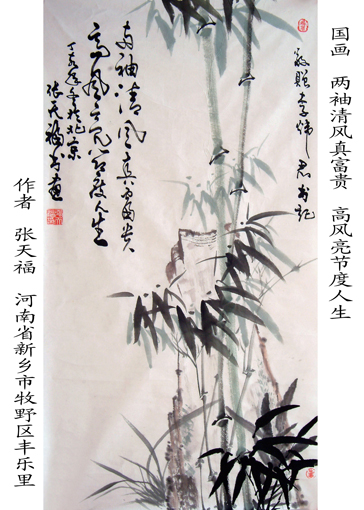 国画 两袖清风真富贵 高风亮节度人生
两袖清风真富贵
高风亮节度人生
丁亥年冬於北京
张天福书画
作者 张天福 河南省新乡市牧野区丰乐里